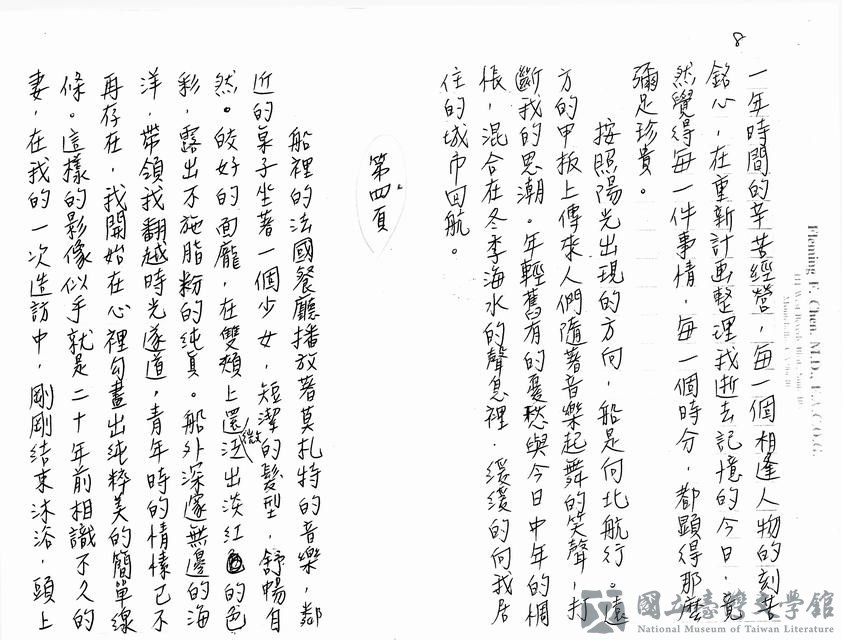 8
一年時間的辛苦經營，每一個相逢人物的刻苦
銘心，在重新計画整理我逝去記憶的今日，竟
然覺得每一件事情，每一個時分，都顯得那麼
彌足珍貴。
按照陽光出現的方向，船是向北航行。遠
方的甲板上傳來人們隨著音樂起舞的笑聲，打
斷我的思潮。年輕舊有的憂愁與今日中年的惆
悵，混合在冬季海水的聲息裡，緩緩的向我居
住的城市回航。
第四頁
船裡的法國餐廳播放著莫扎特的音樂，鄰
近的桌子坐著一個少女，短潔的髮型，舒暢自
然。皎好的面龐，在雙頰上還微泛出淡紅色的色
彩，露出不施脂粉的純真。船外深邃無邊的海
洋，帶領我翻越時光遂道，青年時的情愫已不
再存在，我開始在心裡勾畫出純粹美的簡單線
條。這樣的影像似乎就是二十年前相識不久的
妻，在我的一次造訪中，剛剛結束沐浴，頭上
Fleming F. Chen, M.D., F.A.C.O.G.
國立臺灣文學館
National Museum of Taiwan Literature